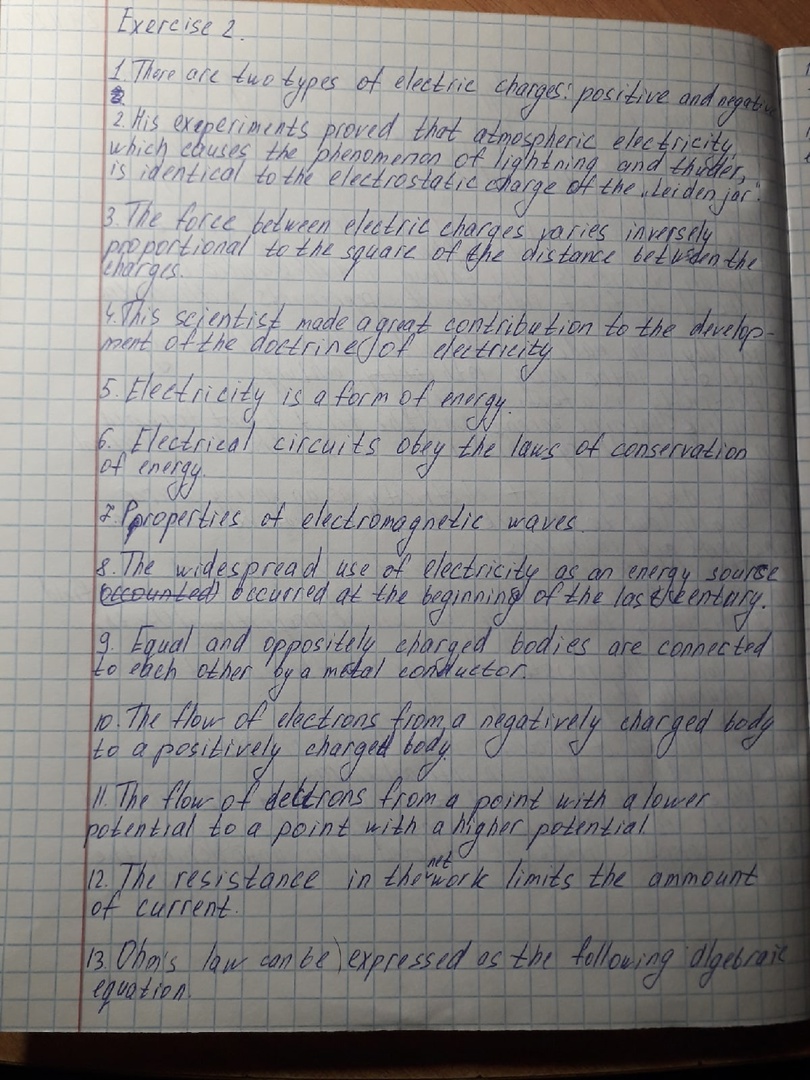 Exercise 2.
1. There are two types of electric charges: positive and negative
2. His experiments proved that atmospheric electricity,
which causes the phenomenon of lightning and thuder,
is identical to the electrostatic charge of the „Leiden jar".
3. The force between electric charges varies inversely
proportional to the square of the distance between the
charges.
4. This scientist made a great contribution to the develop-
ment of the doctrine of electricity
5. Electricity is a form of energy.
6. Electrical circuits obey the laws of conservation
of energy.
7. Pproperties of electromagnetic waves.
8. The widespread use of electricity as an energy source
occurred at the beginning of the last century.
9. Equal and oppositely charged bodies are connected
to each other by a metal conductor.
10. The flow of electrons from a negatively charged body
to a positively charged body.
11. The flow of electrons from a point with a lower
potential to a point with a higher potential.
12. The resistance in the network limits the ammount
of current.
13. Ohm's law can be) expressed as the following algebraic
equation.